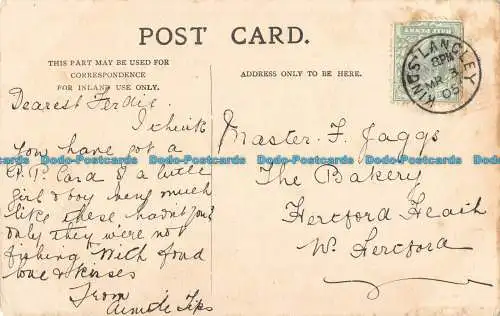 POST CARD.
THIS PART MAY BE USED FOR
CORRESPONDENCE
FOR INLAND USE ONLY.
ADDRESS ONLY TO BE HERE.
HALF PENNY
KINGS LANGLEY
8PM
MR 3
05
Dearest Ferdie
I think
you have got a
P.P. Card of a little
girl & boy very much
like these hadn't you?
only they were not
fishing With fond
love & kisses
From
Master F. Jaggs
The Bakery
Hertford Heath
Nr. Hertford
Dodo-Postcards Dodo-Postcards Dodo-Postcards Dodo-Postcards Dodo-Postcards